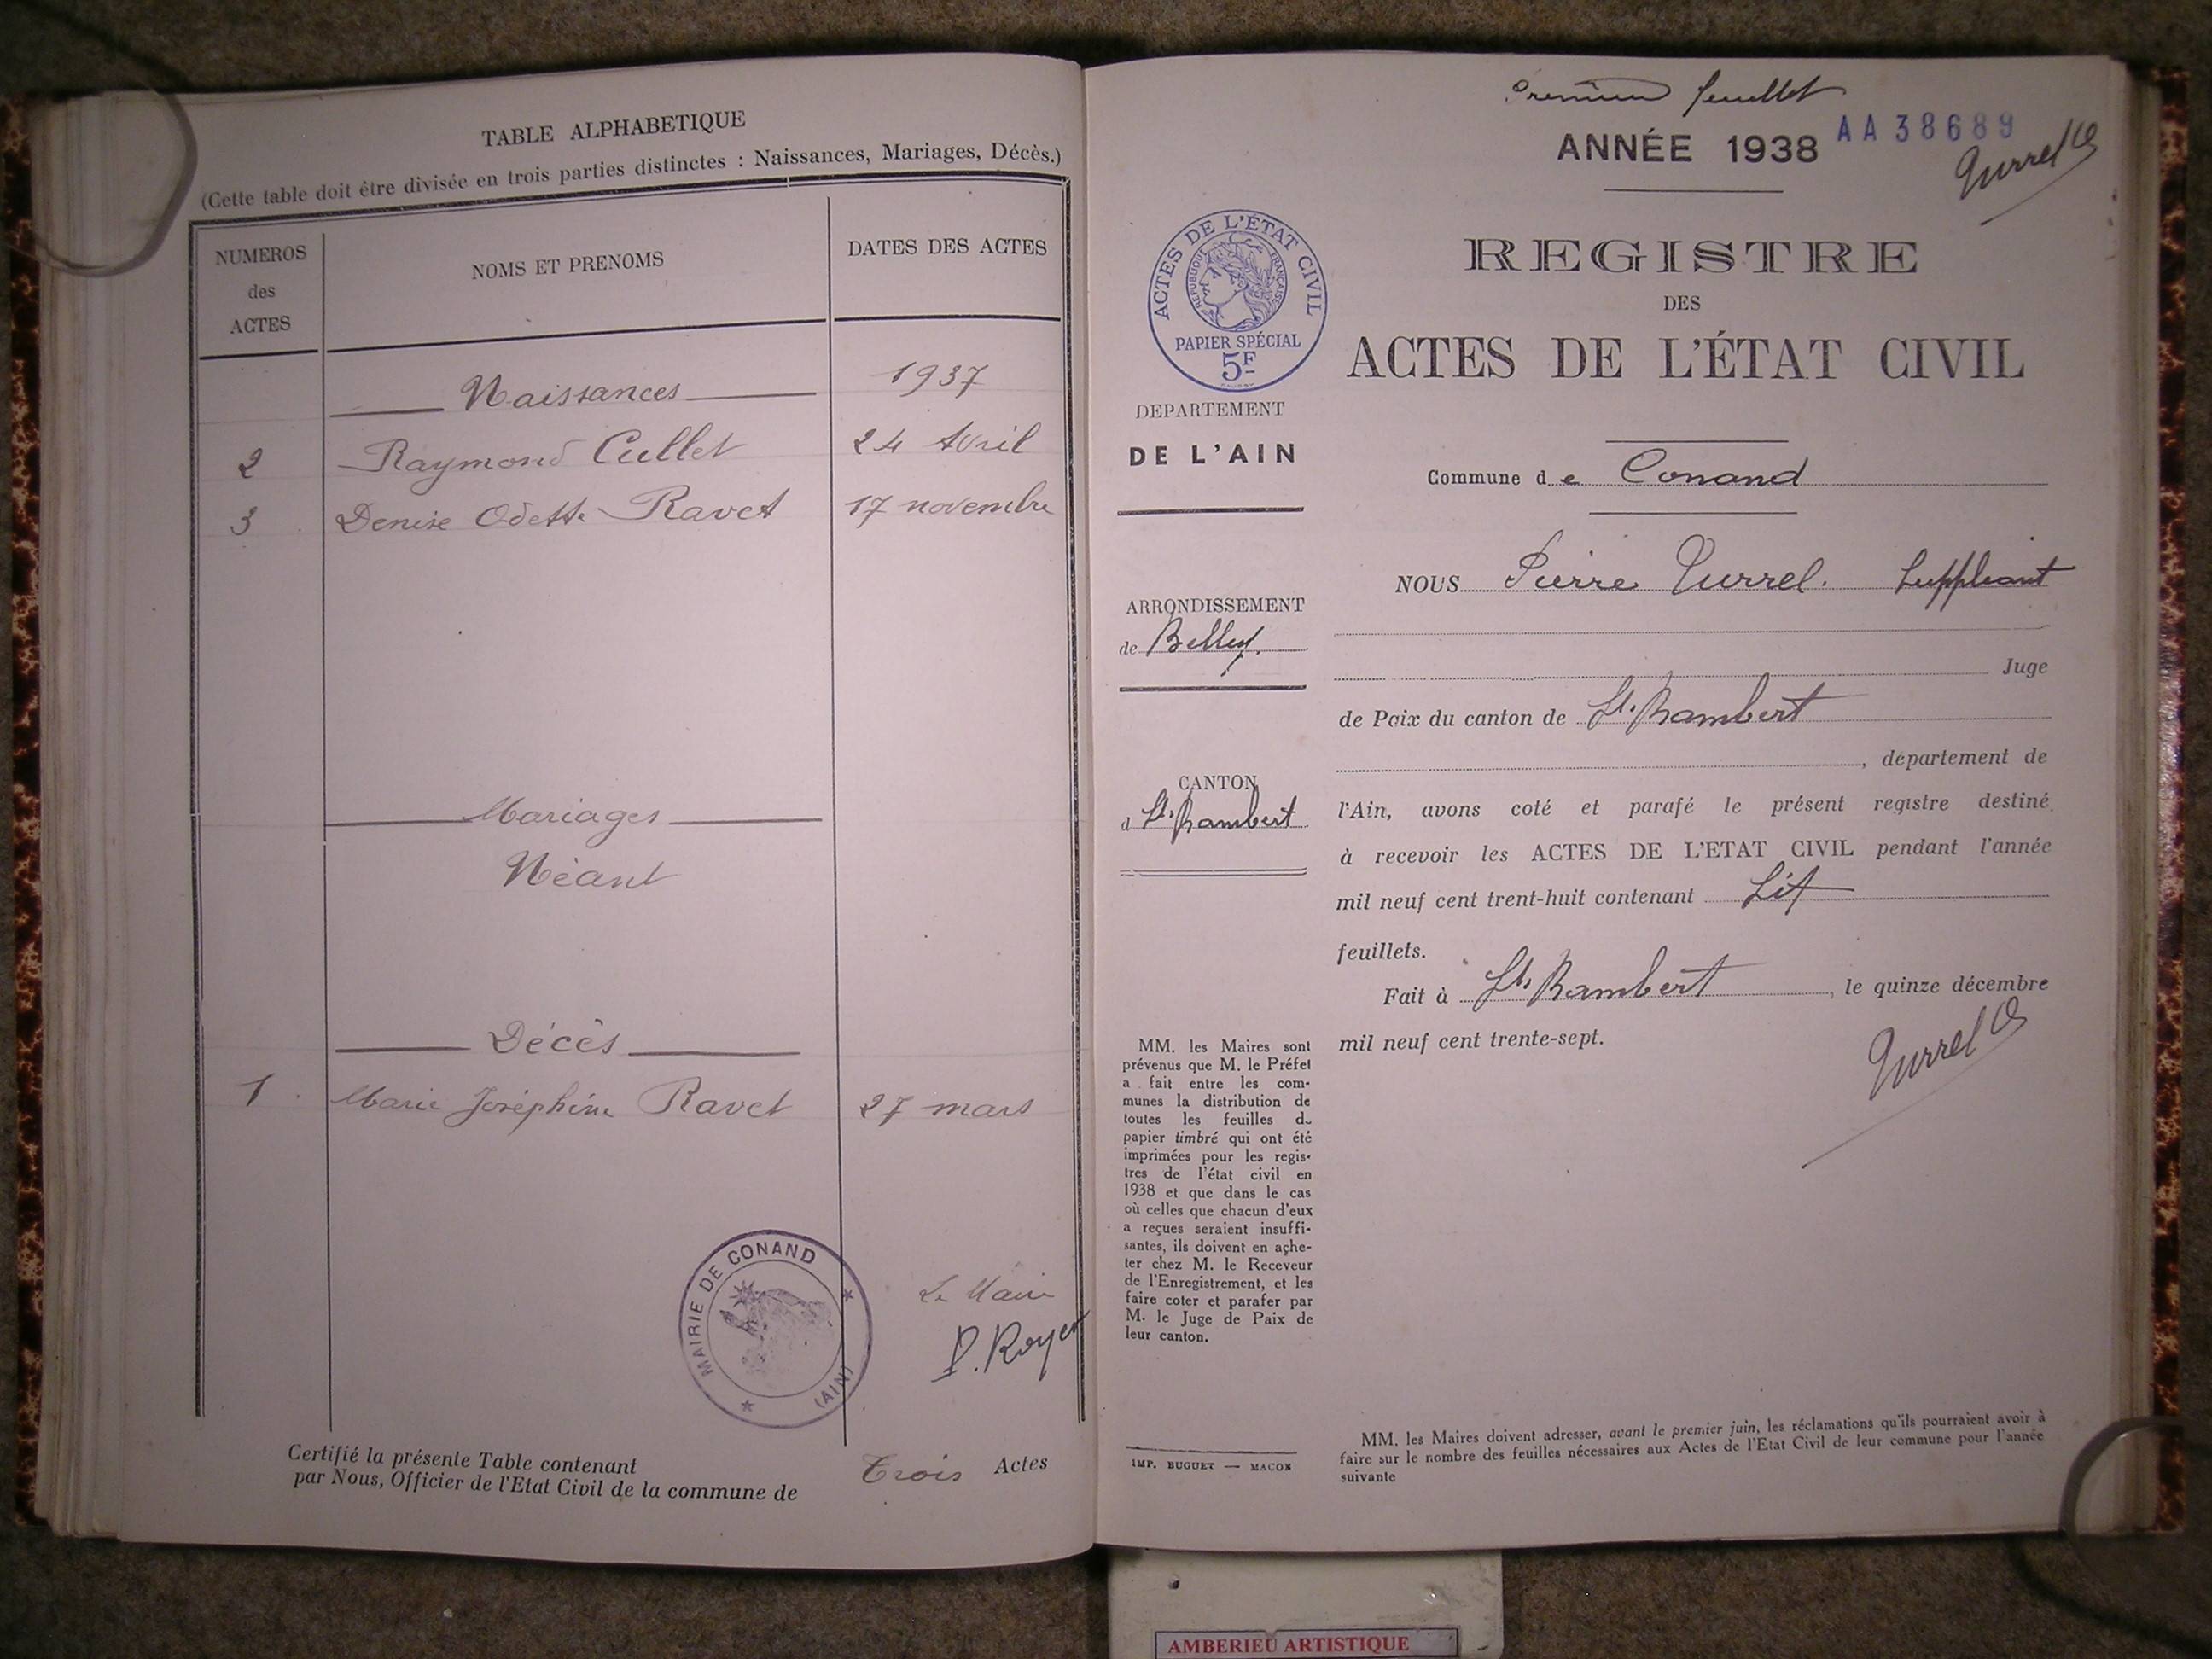 TABLE ALPHABETIQUE
(Cette table doit être divisée en trois parties distinctes : Naissances, Mariages, Décès.)
NUMEROS
des
ACTES
NOMS ET PRENOMS
DATES DES ACTES
Naissances 1937
2 Raymond Cullet 24 Avril
3 Denise Odette Ravet 17 novembre
Mariages
Néant
Décès
1 Marie Joséphine Ravet 27 mars
MAIRIE DE CONAND
(AIN)
Le Maire
P. Royer
Certifié la présente Table contenant Trois Actes
par Nous, Officier de l'Etat Civil de la commune de
Premier feuillet
ANNÉE 1938
AA 38689
Turrel
REGISTRE
DES
ACTES DE L'ÉTAT CIVIL
ACTES DE L'ÉTAT CIVIL
REPUBLIQUE FRANÇAISE
PAPIER SPÉCIAL
5F
DEPARTEMENT
DE L'AIN
ARRONDISSEMENT
de Belley.
CANTON
d St. Rambert
MM. les Maires sont
prévenus que M. le Préfet
a fait entre les com-
munes la distribution de
toutes les feuilles de
papier timbré qui ont été
imprimées pour les regis-
tres de l'état civil en
1938 et que dans le cas
où celles que chacun d'eux
a reçues seraient insuffi-
santes, ils doivent en ache-
ter chez M. le Receveur
de l'Enregistrement, et les
faire coter et parafer par
M. le Juge de Paix de
leur canton.
IMP. BUGUET — MACON
Commune de Conand
NOUS Pierre Turrel. Suppléant
Juge
de Paix du canton de St. Rambert
, département de
l'Ain, avons coté et parafé le présent registre destiné
à recevoir les ACTES DE L'ETAT CIVIL pendant l'année
mil neuf cent trent-huit contenant
feuillets.
Fait à St. Rambert, le quinze décembre
mil neuf cent trente-sept.
Turrel
MM. les Maires doivent adresser, avant le premier juin, les réclamations qu'ils pourraient avoir à
faire sur le nombre des feuilles nécessaires aux Actes de l'Etat Civil de leur commune pour l'année
suivante
AMBERIEU ARTISTIQUE